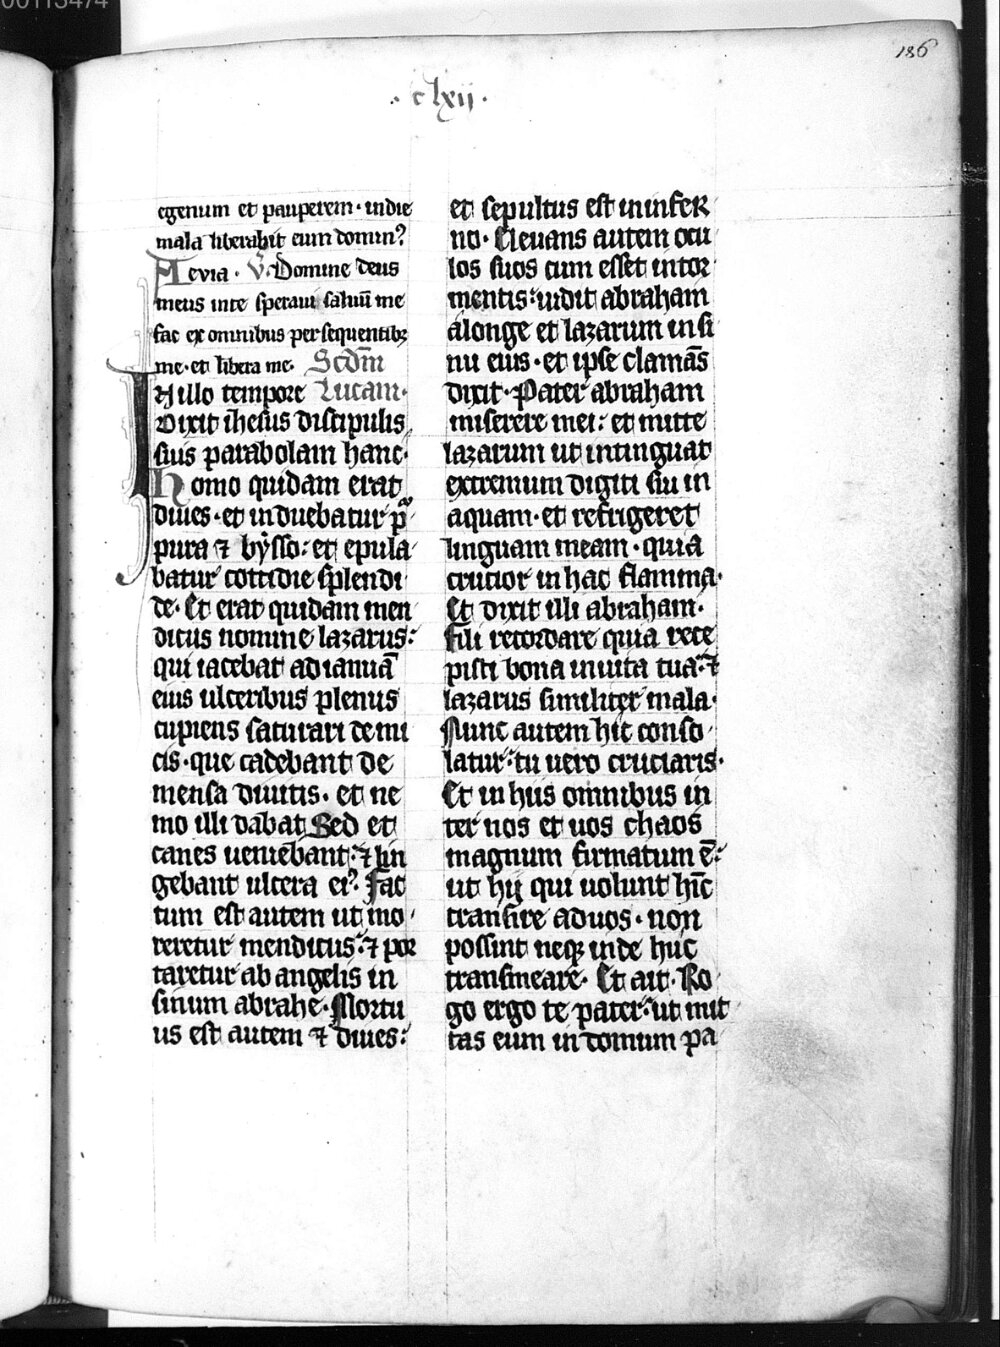 00113474
186
·clxii·
egenum et pauperem· in die
mala liberabit eum domin⁹
Aevia· V̄. Domine deus
meus in te speravi salvū me
fac ex omnibus persequentibꝫ
me· et libera me. Scdm̄
IN illo tempore Lucam·
Dixit ihesus discipulis
suis parabolam hanc·
Homo quidam erat
dives· et induebatur pur
pura ⁊ bẏsso: et epula
batur cottidie splendi
de· Et erat quidam men
dicus nomine lazarus:
qui iacebat ad ianuā
eius ulceribus plenus
cupiens saturari de mi
cis· que cadebant de
mensa divitis· et ne
mo illi dabat Sed et
canes veniebant: ⁊ lin
gebant ulcera ei⁹. Fac
tum est autem ut mo
reretur mendicus: ⁊ por
taretur ab angelis in
sinum abrahe· Mortu
us est autem ⁊ dives:
et sepultus est in infer
no· Elevans autem ocu
los suos cum esset in tor
mentis: vidit abraham
alonge et lazarum in si
nu eius· et ipse clamās
dixit· Pater abraham
miserere mei: et mitte
lazarum ut intinguat
extremum digiti sui in
aquam· et refrigeret
linguam meam· quia
crucior in hac flamma·
Et dixit illi abraham·
Fili recordare quia rece
pisti bona in vita tua: ⁊
lazarus similiter mala·
Nunc autem hic conso
latur: tu vero cruciaris·
Et in hiis omnibus in
ter nos et vos chaos
magnum firmatum ē:
ut hij qui volunt hīc
transire ad vos· non
possint neqꝫ inde huc
transmeare· Et ait· Ro
go ergo te pater: ut mit
tas eum in domum pa